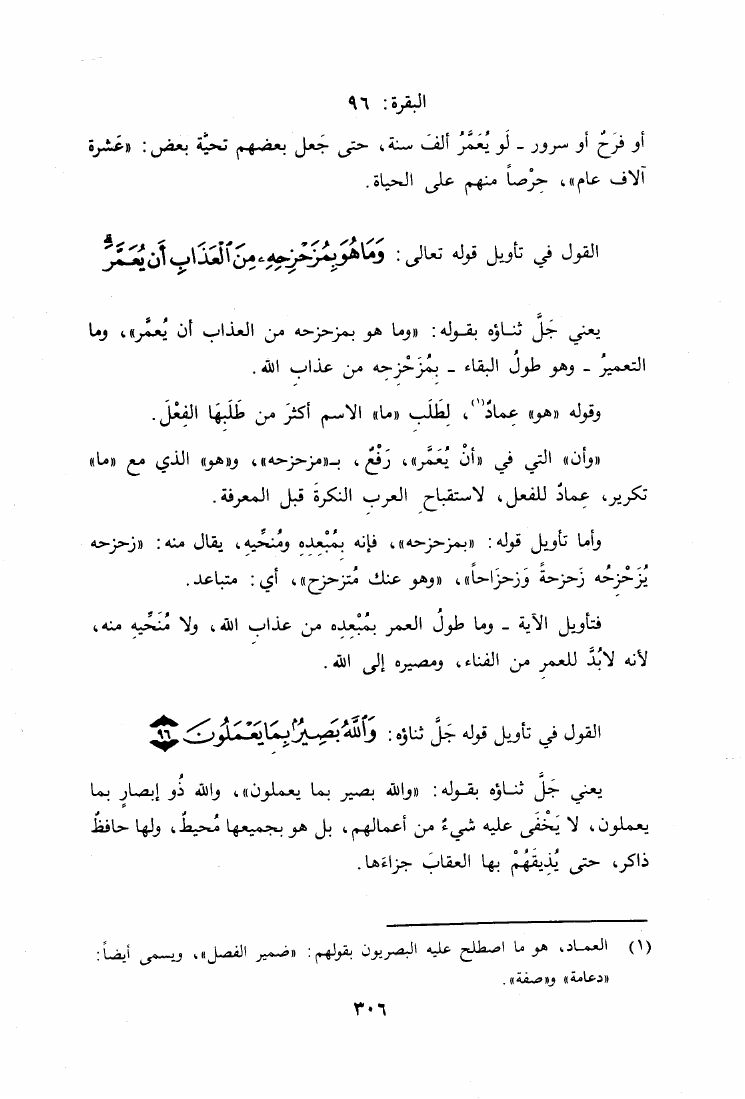 البقرة: ٩٦
أو فَرَحٌ أو سرور ـ لَو يُعَمَّرُ ألفَ سنة، حتى جَعل بعضهم تحيَّة بعض: «عَشرة
آلاف عام»، حِرْصاً منهم على الحياة.
القول في تأويل قوله تعالى: وَمَا هُوَ بِمُزَحْزِحِهِۦ مِنَ ٱلْعَذَابِ أَن يُعَمَّرَ ۗ
يعني جَلَّ ثناؤه بقوله: «وما هو بمزحزحه من العذاب أن يُعمَّر»، وما
التعميرُ ـ وهو طولُ البقاء ـ بِمُزَحْزِحِه من عذابِ الله.
وقوله «هو» عِمادٌ(١)، لِطَلَبِ «ما» الاسم أكثرَ من طَلَبِهَا الفِعْلَ.
«وأن» التي في «أنْ يُعَمَّر»، رَفْعٌ، بـ«مزحزحه»، و«هو» الذي مع «ما»
تكرير، عِمادٌ للفعل، لاستقباحِ العربِ النكرةَ قبل المعرفة.
وأما تأويل قوله: «بمزحزحه»، فإنه بمُبْعِدِه ومُنَحِّيهِ، يقال منه: «زحزحه
يُزَحْزِحُه زَحزحةً وَزِحزَاحاً»، «وهو عنك مُتزحزح»، أي: متباعد.
فتأويل الآية ـ وما طولُ العمر بمُبْعِدِه من عذابِ الله، ولا مُنَحِّيهِ منه،
لأنه لابُدَّ للعمرِ من الفناء، ومصيره إلى الله.
القول في تأويل قوله جَلَّ ثناؤه: وَٱللَّهُ بَصِيرٌۢ بِمَا يَعْمَلُونَ ٩٦
يعني جَلَّ ثناؤه بقوله: «والله بصير بما يعملون»، والله ذُو إبصارٍ بما
يعملون، لا يَخْفَى عليه شيءٌ من أعمالهم، بل هو بجميعها مُحيطٌ، ولها حافظٌ
ذاكر، حتى يُذِيقَهُمْ بها العقابَ جزاءَها.
(١) العماد، هو ما اصطلح عليه البصريون بقولهم: «ضمير الفصل»، ويسمى أيضاً:
«دعامة» و«صفة».
٣٠٦